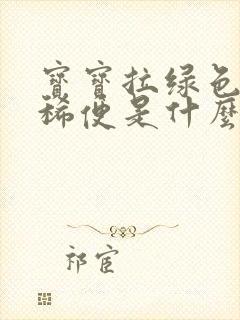 寶寶拉绿色
稀便是什麼
祁宦